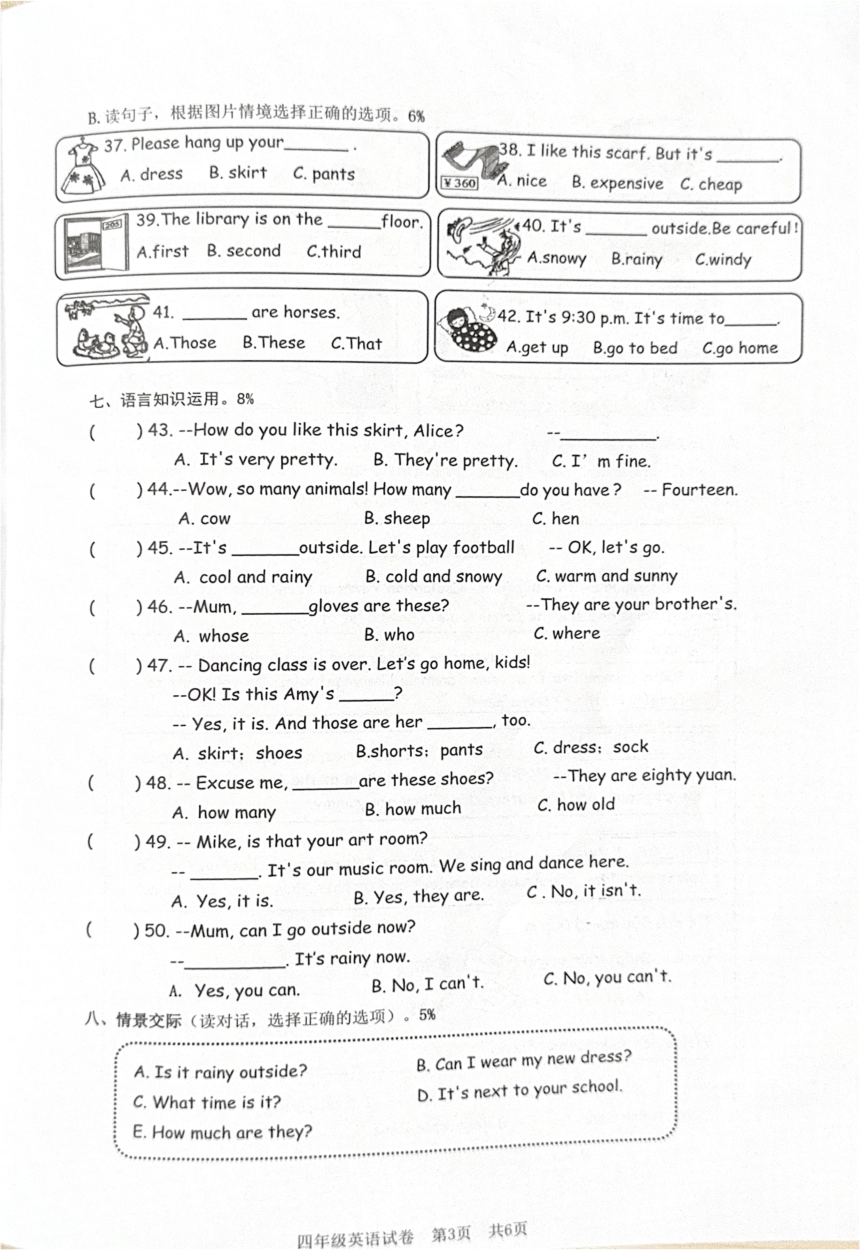 B. 读句子，根据图片情境选择正确的选项。6%
37. Please hang up your_______ .
A. dress B. skirt C. pants
38. I like this scarf. But it's _______.
¥360
A. nice B. expensive C. cheap
39.The library is on the ______floor.
203
A.first B. second C.third
40. It's _______ outside.Be careful!
A.snowy B.rainy C.windy
41. _______ are horses.
A.Those B.These C.That
42. It's 9:30 p.m. It's time to______.
A.get up B.go to bed C.go home
七、语言知识运用。8%
( ) 43. --How do you like this skirt, Alice? --___________.
A. It's very pretty. B. They're pretty. C. I'm fine.
( ) 44.--Wow, so many animals! How many _______do you have? -- Fourteen.
A. cow B. sheep C. hen
( ) 45. --It's ________outside. Let's play football -- OK, let's go.
A. cool and rainy B. cold and snowy C. warm and sunny
( ) 46. --Mum, ________gloves are these? --They are your brother's.
A. whose B. who C. where
( ) 47. -- Dancing class is over. Let's go home, kids!
--OK! Is this Amy's ______?
-- Yes, it is. And those are her _______, too.
A. skirt; shoes B.shorts; pants C. dress; sock
( ) 48. -- Excuse me, ________are these shoes? --They are eighty yuan.
A. how many B. how much C. how old
( ) 49. -- Mike, is that your art room?
-- ________. It's our music room. We sing and dance here.
A. Yes, it is. B. Yes, they are. C . No, it isn't.
( ) 50. --Mum, can I go outside now?
--____________. It's rainy now.
A. Yes, you can. B. No, I can't. C. No, you can't.
八、情景交际（读对话，选择正确的选项）。5%
A. Is it rainy outside? B. Can I wear my new dress?
C. What time is it? D. It's next to your school.
E. How much are they?
四年级英语试卷 第3页 共6页